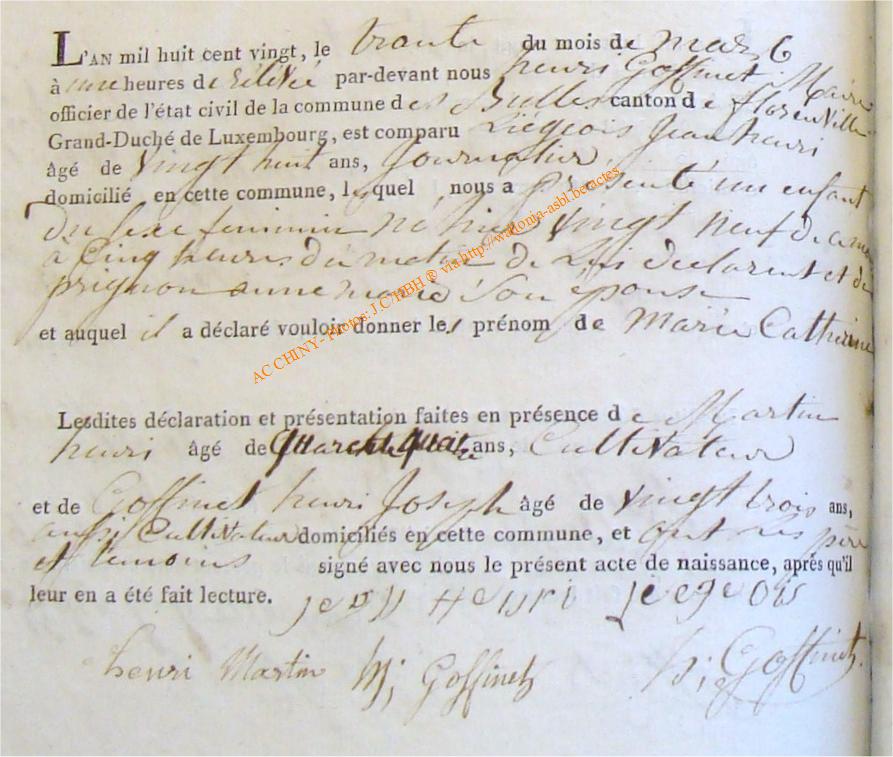 L'AN mil huit cent vingt, le trante du mois de mars
à une heures de rélévé par-devant nous henri Goffinet Maire
officier de l'état civil de la commune des Bulles canton de florenville
Grand-Duché de Luxembourg, est comparu Liégeois Jean henri
âgé de vingt huit ans, Journalier,
domicilié en cette commune, lequel nous a présenté un enfant
du sexe feminin né hier vingt neuf de ce mois
à Cinq heures du matin de Lui declarent et de
prignon anne marie Son épouse
et auquel il a déclaré vouloir donner les prénom de Marie Catherine
Lesdites déclaration et présentation faites en présence de Martin
henri âgé de quarente quatre ans, Cultivateur
et de Goffinet henri Joseph âgé de vingt trois ans,
aussi Cultivateur domiciliés en cette commune, et ont Les père
et temoins signé avec nous le présent acte de naissance, après qu'il
leur en a été fait lecture. jean Henri liegeois
henri Martin hj Goffinet h; Goffinet
AC CHINY - Photos: J.C HBH ® via http://wallonia-asbl.be/actes